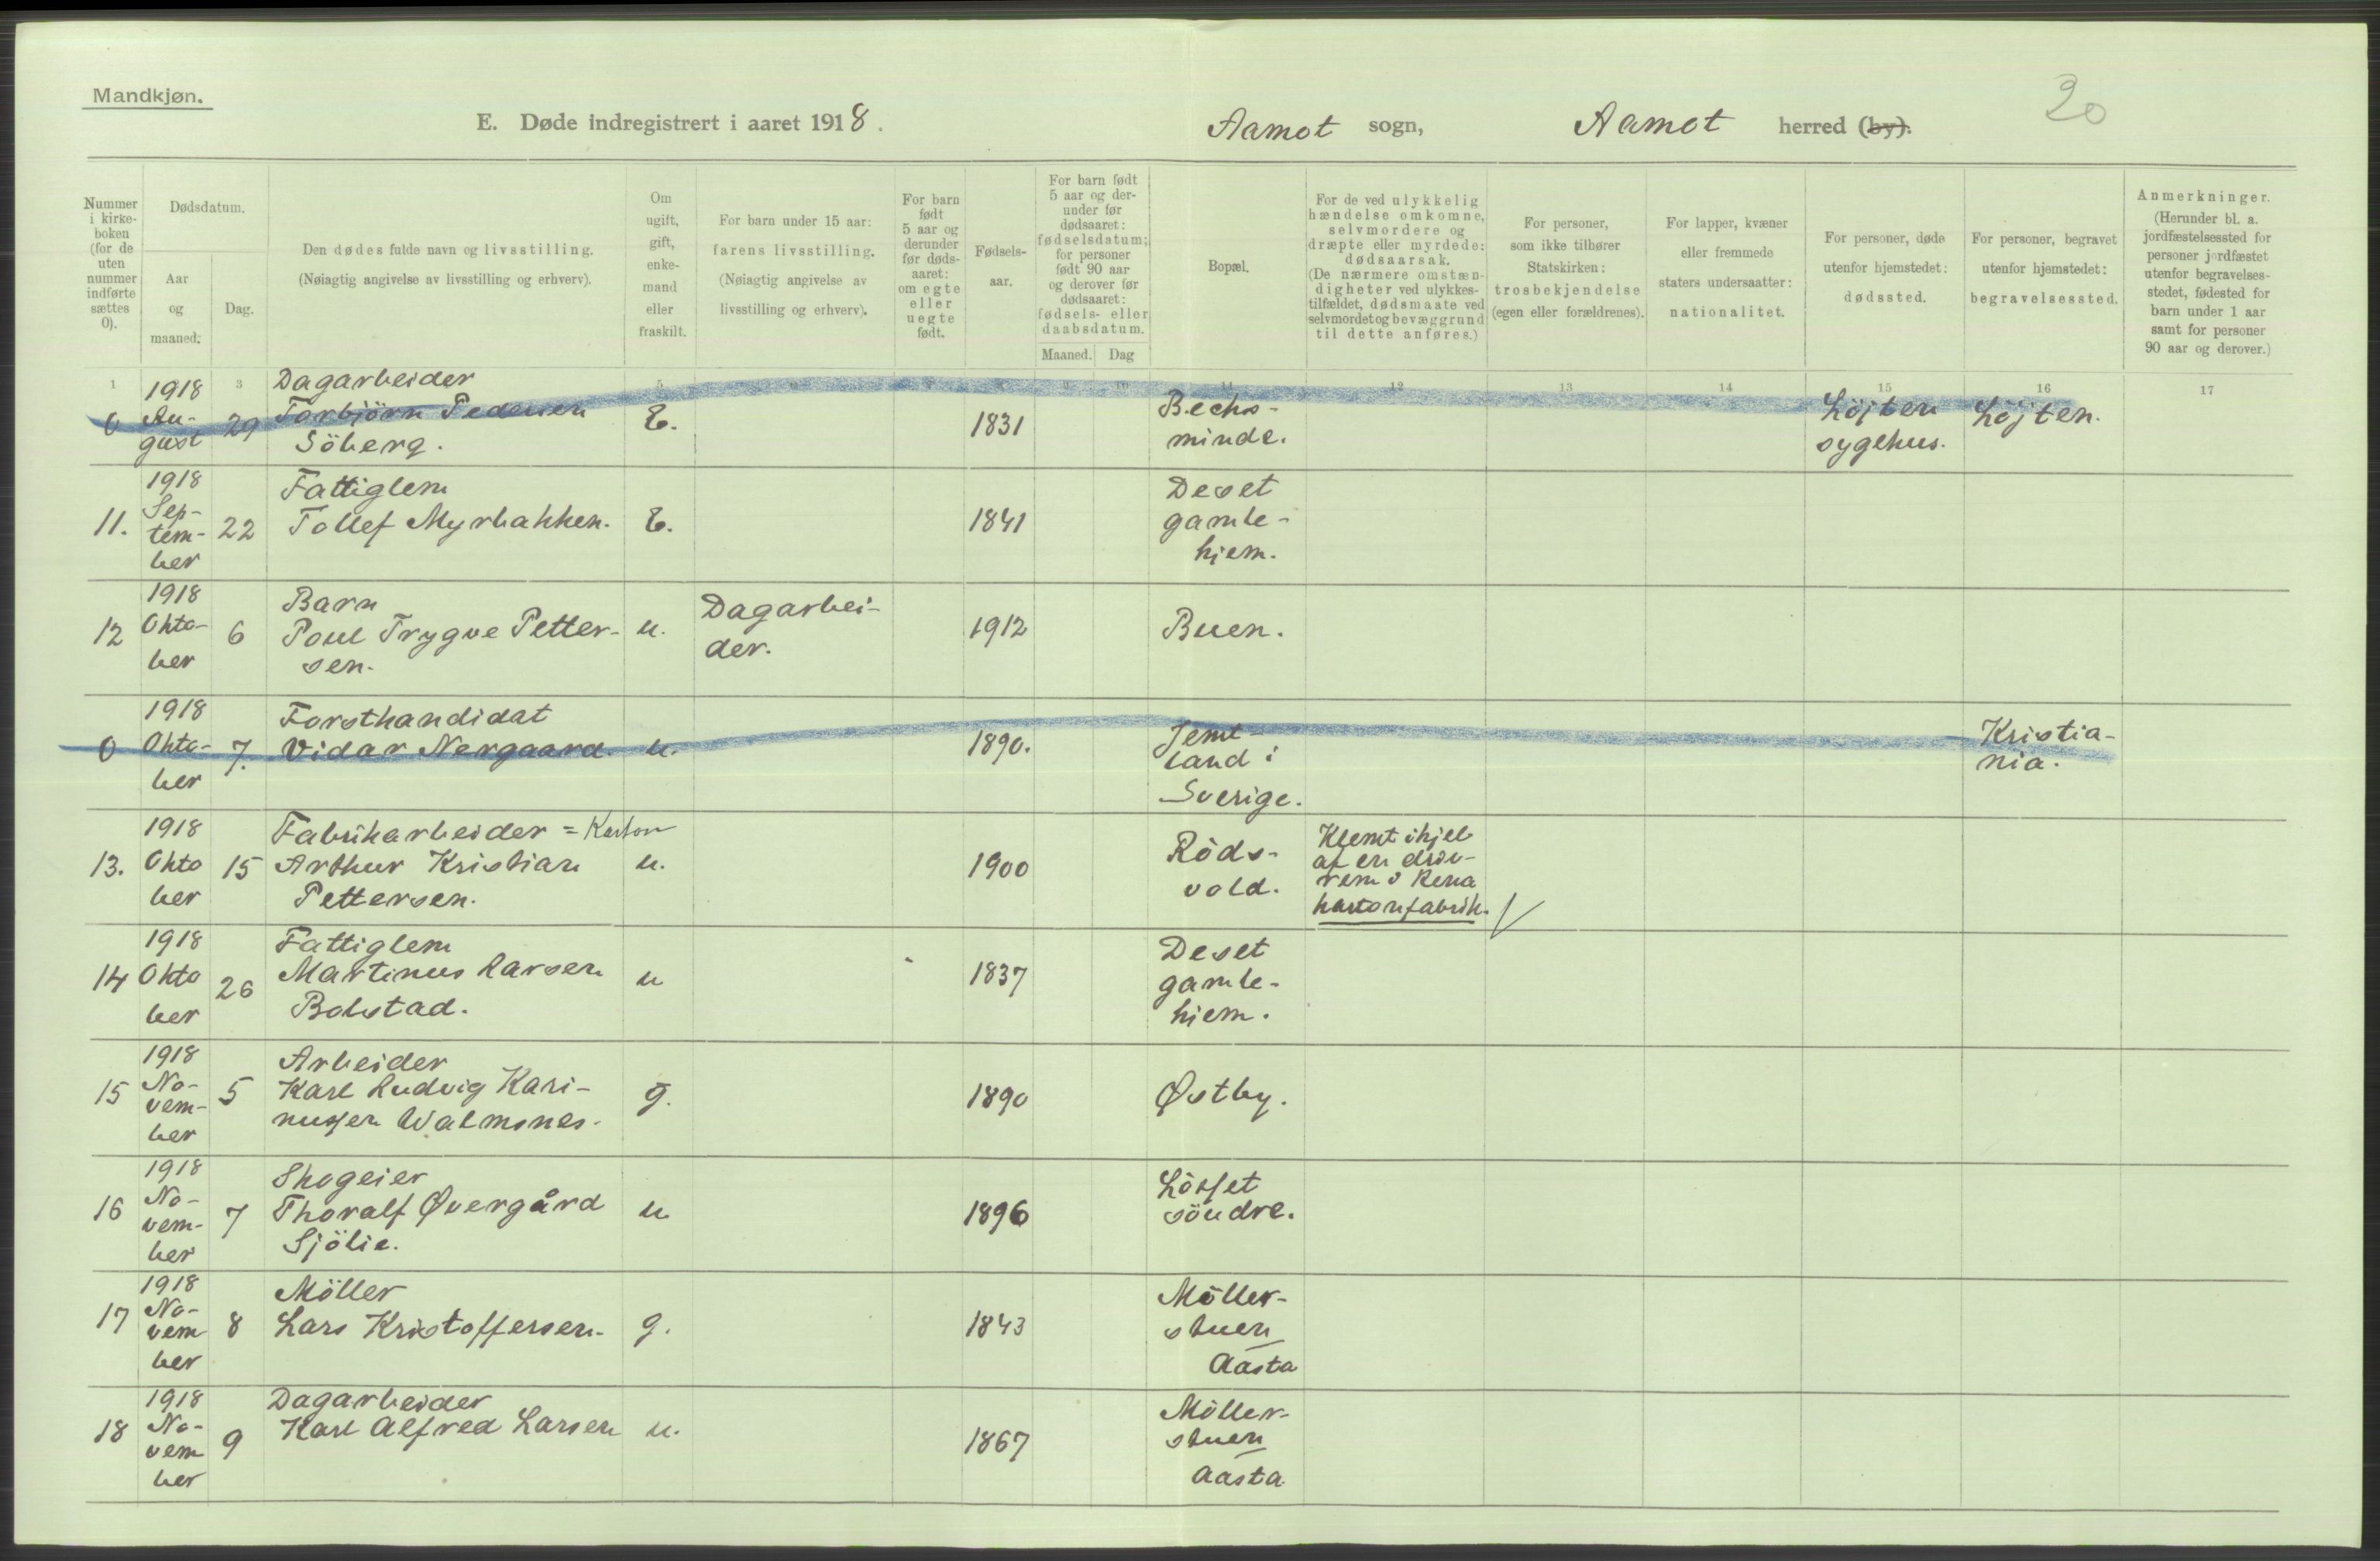 Mandkjøn.
20
E. Døde indregistrert i aaret 1918.
Aamot sogn,
Aamot herred (by).
Nummer
i kirke-
boken
(for de
uten
nummer
indførte
sættes
0).
Dødsdatum.
Aar
og
maaned.
Dag.
Den dødes fulde navn og livsstilling.
(Nøiagtig angivelse av livsstilling og erhverv).
Om
ugift,
gift,
enke-
mand
eller
fraskilt.
For barn under 15 aar:
farens livsstilling.
(Nøiagtig angivelse av
livsstilling og erhverv).
For barn
født
5 aar og
derunder
før døds-
aaret:
om egte
eller
uegte
født.
Fødsels-
aar.
For barn født
5 aar og der-
under før
dødsaaret:
fødselsdatum;
for personer
født 90 aar
og derover før
dødsaaret:
fødsels- eller
daabsdatum.
Maaned. Dag
Bopæl.
For de ved ulykkelig
hændelse omkomne,
selvmordere og
dræpte eller myrdede:
dødsaarsak.
(De nærmere omstæn-
digheter ved ulykkes-
tilfældet, dødsmaate ved
selvmordet og bevæggrund
til dette anføres.)
For personer,
som ikke tilhører
Statskirken:
trosbekjendelse
(egen eller forældrenes).
For lapper, kvæner
eller fremmede
staters undersaatter:
nationalitet.
For personer, døde
utenfor hjemstedet:
dødssted.
For personer, begravet
utenfor hjemstedet:
begravelsessted.
Anmerkninger.
(Herunder bl. a.
jordfæstelsessted for
personer jordfæstet
utenfor begravelses-
stedet, fødested for
barn under 1 aar
samt for personer
90 aar og derover.)
1 3 5 6 7 8 9 10 11 12 13 14 15 16 17
0
1918
Au-
gust
29
Dagarbeider
Torbjörn Pedersen
Söberg.
E.
1831
Bechs-
minde.
Löjten
sygehus.
Löjten.
11.
1918
Sep-
tem-
ber
22
Fattiglem
Tollef Myrbakken.
E.
1841
Deset
gamle-
hjem.
12
1918
Okto-
ber
6
Barn
Poul Trygve Petter-
sen.
u.
Dagarbei-
der.
1912
Buen.
0
1918
Okto-
ber
7.
Forstkandidat
Vidar Nergaard.
u.
1890.
Jemt-
land i
Sverige.
Kristia-
nia.
13.
1918
Okto
ber
15
Fabrikarbeider = Karton
Arthur Kristian
Pettersen.
u.
1900
Röds-
vold.
Klemt ihjel
af en driv-
rem i Rena
kartonfabrik.
14
1918
Okto
ber
26
Fattiglem
Martinus Larsen
Bolstad.
u
1837
Deset
gamle-
hjem.
15
1918
No-
vem-
ber
5
Arbeider
Karl Ludvig Kari-
nussen Walmsnes.
g.
1890
Østby.
16
1918
No-
vem-
ber
7
Skogeier
Thoralf Øvergård
Sjölie.
u
1896
Lösset
söndre.
17
1918
No-
vem
ber
8
Möller
Lars Kristoffersen.
g.
1843
Möller-
stuen
Aasta
18
1918
No-
vem
ber
9
Dagarbeider
Karl Alfred Larsen
u.
1867
Möller-
stuen
Aasta